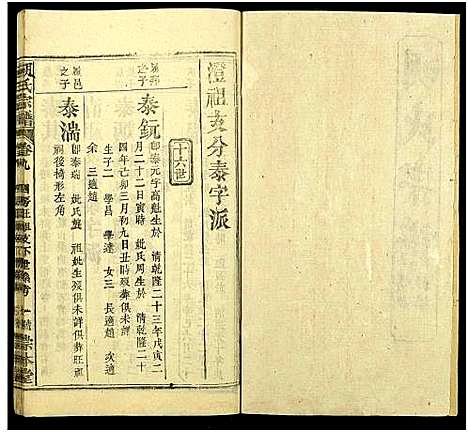 澄祖支分泰字派
十六世
鳳邦之子
泰鈨
即泰元字高魁生於 清乾隆二十三年戊寅二
月二十二日寅時 妣氏周生於 清乾隆二十
四年己卯三月初九日丑時歿葬俱未詳
生子二 學昌 學達 女三 長適趙 次適
余 三適趙
邑之子
泰湍
即泰瑞 妣氏盤 祖妣生歿俱未詳俱葬旺祖
祠後椅形左角
氏宗譜
卷九
崇本堂